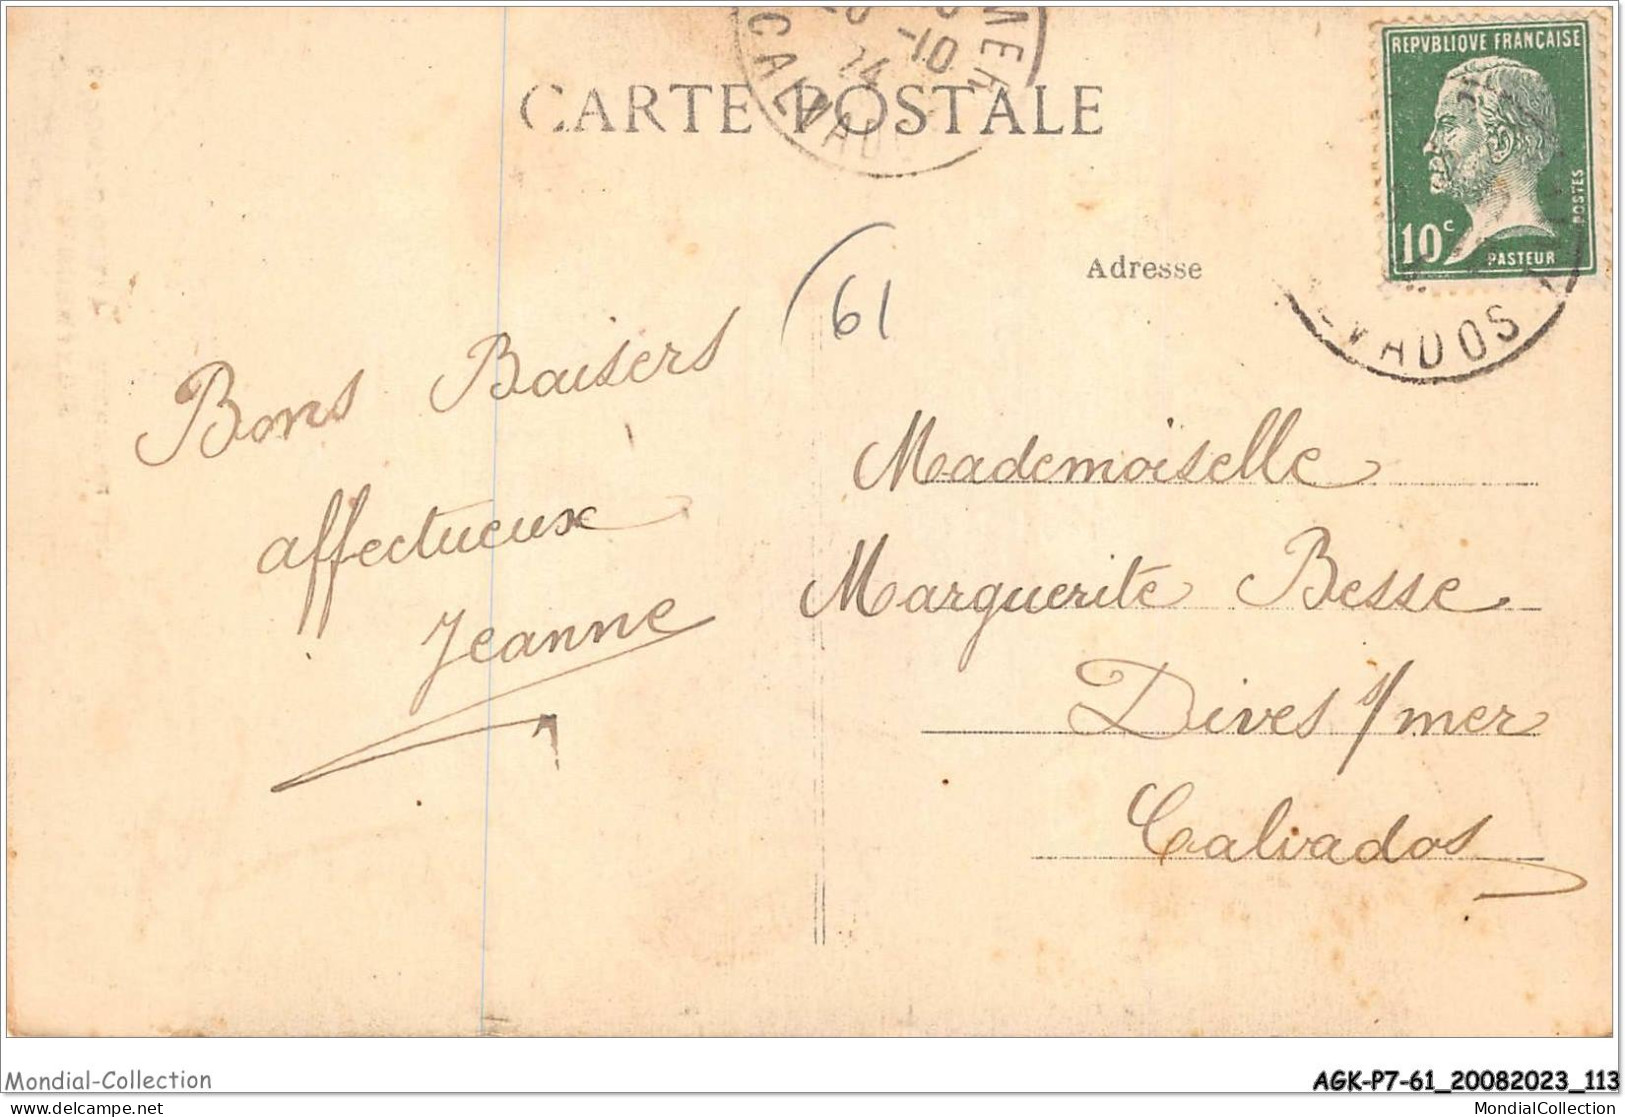 CARTE POSTALE
MER
-10
24
CALVADOS
REPVBLIQVE FRANÇAISE
10c
POSTES
PASTEUR
LVADOS
Adresse
61
Bons Baisers
affectueux
Jeanne
Mademoiselle
Marguerite Besse
Dives s/mer
Calvados
Mondial-Collection
AGK-P7-61_20082023_113
www.delcampe.net
MondialCollection